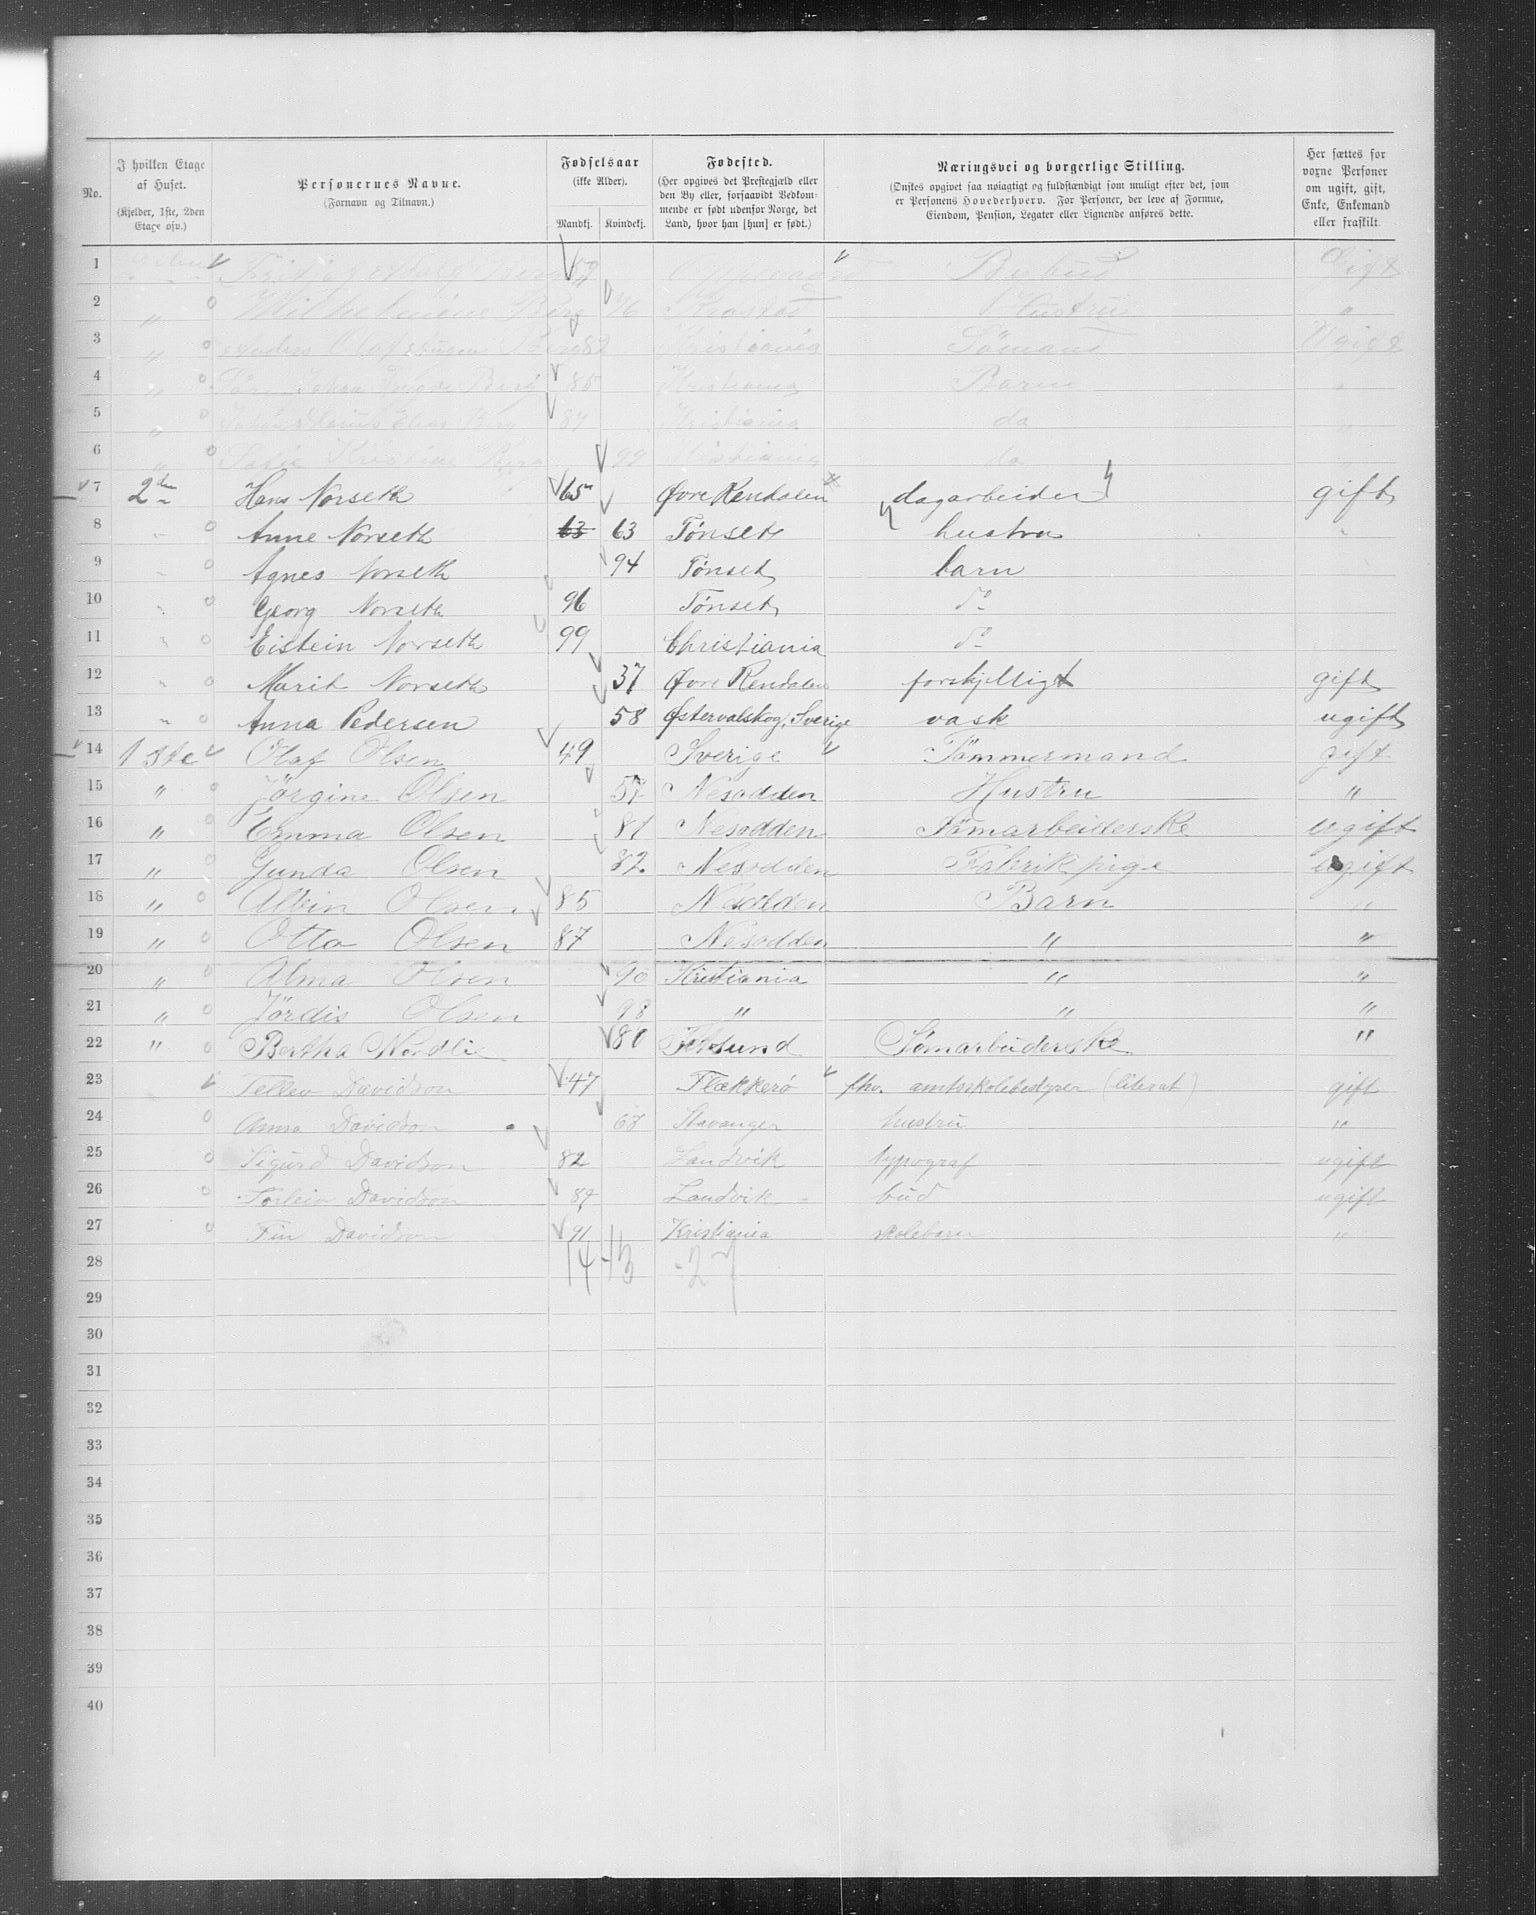 No. | I hvilken Etage af Huset. (Kjelder, 1ste, 2den Etage osv.) | Personernes Navne. (Fornavn og Tilnavn.) | Fødselsaar (ikke Alder). Mandkj. | Kvindekj. | Fødested. (Her opgives det Prestegjæld eller den By eller, forsaavidt Vedkommende er født udenfor Norge, det Land, hvor han [hun] er født.) | Næringsvei og borgerlige Stilling. (Ønskes opgivet saa nøiagtigt og fuldstændigt som muligt efter det, som er Personens Hovederhverv. For Personer, der leve af Formue, Eiendom, Pension, Legater eller Lignende anføres dette. | Her sættes for voxne Personer om ugift, gift, Enke, Enkemand eller fraskilt.
1 Berg Bybud Gift
2 „ Berg Hustru „
3 „ Anders Olaf Berg 82 Kristiania Sömand Ugift
4 „ Johan Berg 85 Kristiania Barn „
5 „ Berg 87 Kristiania do „
6 „ Berg 99 Kristiania do „
7 2den Hans Norseth 65 Øvre Rendalen dagarbeider gift
8 „ Anne Norseth 63 63 Tønset hustru „
9 „ Agnes Norseth 94 Tønset barn
10 „ Georg Norseth 96 Tønset do
11 „ Eistein Norseth 99 Christiania do
12 „ Marit Norseth 37 Øvre Rendalen forskjelligt gift
13 „ Anna Pedersen 58 Østervalskog, Sverige vask ugift
14 1ste Olaf Olsen 49 Sverige Tömmermand gift
15 „ Jörgine Olsen 57 Nesodden Hustru „
16 „ Emma Olsen 81 Nesodden Sömarbeiderske ugift
17 „ Gunda Olsen 82 Nesodden Fabrikpige ugift
18 „ Albin Olsen 85 Nesodden Barn „
19 „ Otto Olsen 87 Nesodden „ „
20 „ Alma Olsen 90 Kristiania „ „
21 „ Jördis Olsen 98 „ „ „
22 „ Bertha Nordli 80 Sömarbeiderske „
23 Tellev Davidson 47 Flækkerø fhv. amtsskolebestyrer (literat) gift
24 Anna Davidson 68 Stavanger hustru „
25 Sigurd Davidson 82 Landvik typograf ugift
26 Davidson 87 Landvik bud ugift
27 Fin Davidson 91 Kristiania skolebarn „
28 14-13 -27
29
30
31
32
33
34
35
36
37
38
39
40